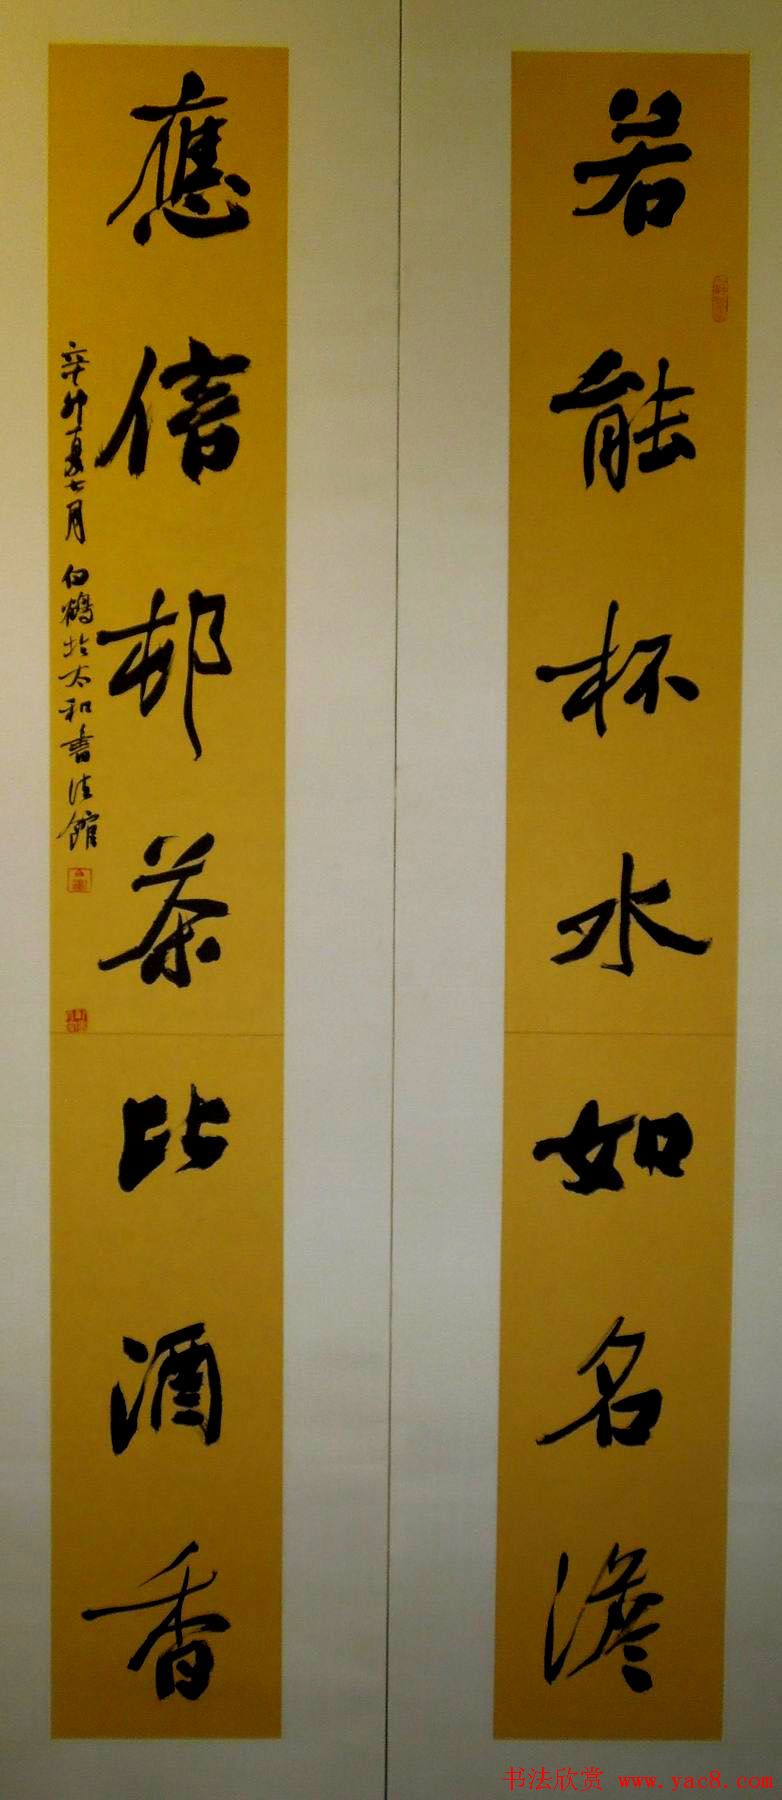 若能杯水如名淡
應信邨茶比酒香
辛卯夏七月 白鶴於太和書法館
书法欣赏 www.yac8.com